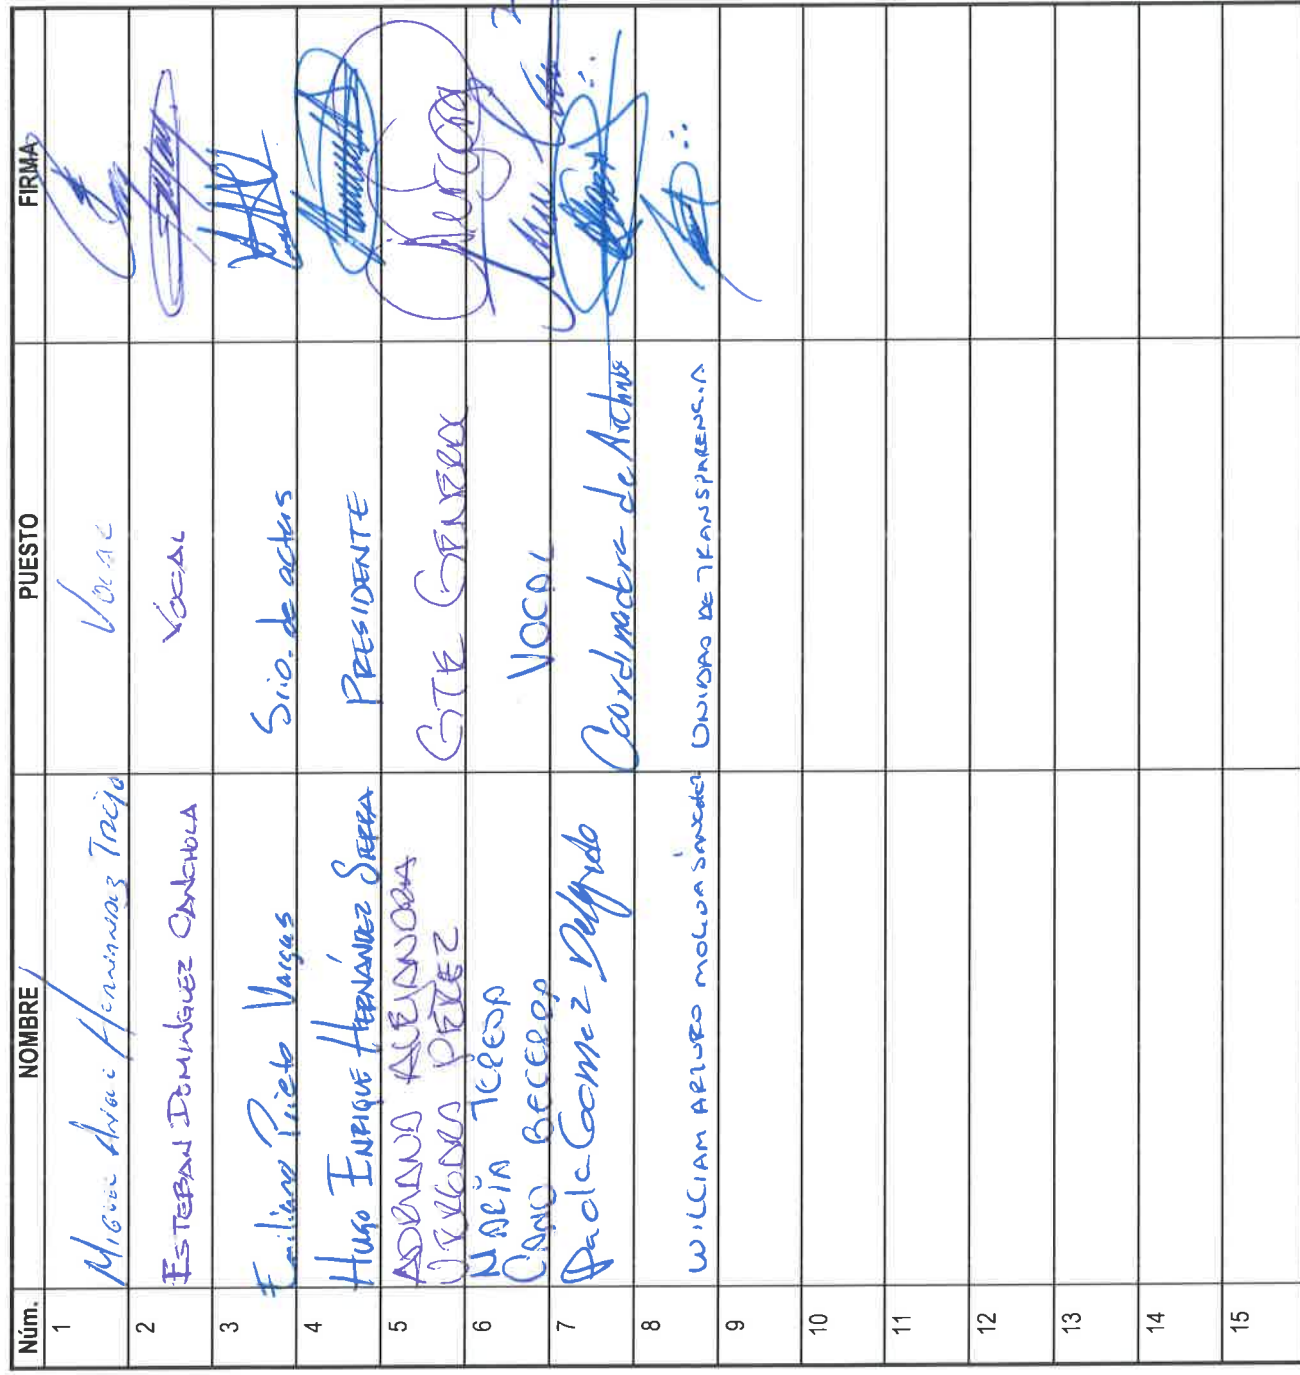 Núm. NOMBRE PUESTO FIRMA
1 Miguel Angel Hernandez Trejo Vocal
2 ESTEBAN DOMINGUEZ CANCHOLA VOCAL
3 Emiliano Prieto Vargas Srio. de actas
4 HUGO ENRIQUE HERNÁNDEZ SIERRA PRESIDENTE
5 ADRIANA ALEJANDRA
PÉREZ GTE GENERAL
6 MARÍA TERESA
CANO BECERRA VOCAL
7 Paola Gomez Delgado Coordinadora de Archivo
8 WILLIAM ARTURO MOLINA SÁNCHEZ UNIDAD DE TRANSPARENCIA
9
10
11
12
13
14
15